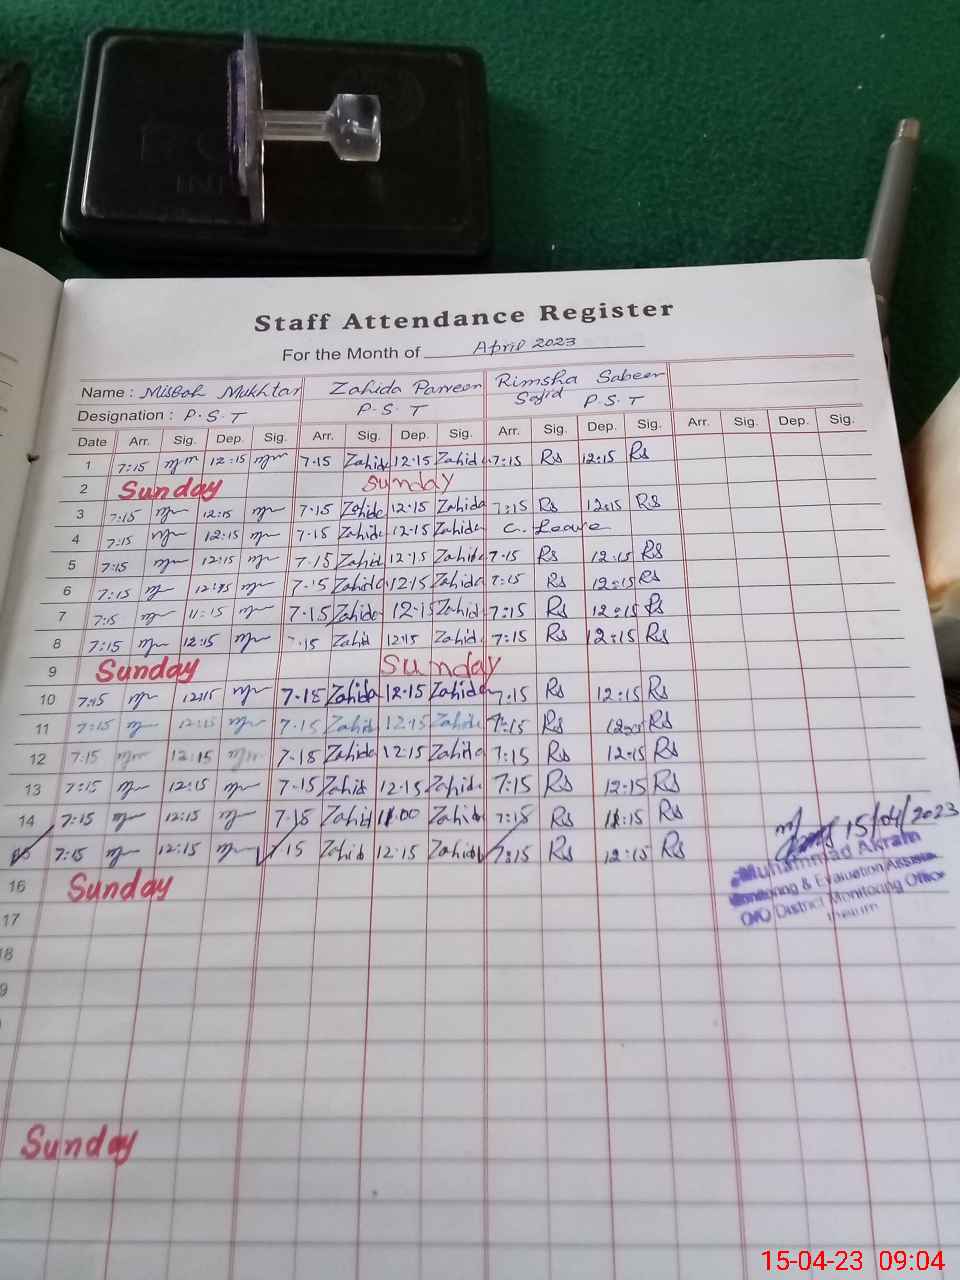 Staff Attendance Register
For the Month of April 2023
Name : Misbah Mukhtar Zahida Parveen Rimsha Sabeer
Sajid
Designation : P.S.T P.S.T P.S.T
Date Arr. Sig. Dep. Sig. Arr. Sig. Dep. Sig. Arr. Sig. Dep. Sig. Arr. Sig. Dep. Sig.
1 7:15 12:15 7.15 Zahida 12.15 Zahid 7:15 Rs 12:15 Rs
2 Sunday Sunday
3 7:15 12:15 7.15 Zahida 12.15 Zahida 7:15 Rs 12:15 Rs
4 7:15 12:15 7.15 Zahida 12.15 Zahida C. Leave
5 7:15 12:15 7.15 Zahid 12.15 Zahida 7:15 Rs 12:15 Rs
6 7:15 12:15 7.15 Zahida 12.15 Zahida 7:15 Rs 12:15 Rs
7 7:15 11:15 7.15 Zahida 12.15 Zahid 7:15 Rs 12:15 Rs
8 7:15 12:15 .15 Zahid 12.15 Zahid 7:15 Rs 12:15 Rs
9 Sunday Sunday
10 7:15 12:15 7.15 Zahida 12.15 Zahida 7:15 Rs 12:15 Rs
11 7:15 12:15 7.15 Zahid 12.15 Zahida 7:15 Rs Rs
12 7:15 12:15 7.15 Zahida 12.15 Zahida 7:15 Rs 12:15 Rs
13 7:15 12:15 7.15 Zahid 12.15 Zahida 7:15 Rs 12:15 Rs
14 7:15 12:15 7.15 Zahid 11.00 Zahid 7:15 Rs 11:15 Rs
7:15 12:15 7.15 Zahid 12.15 Zahid 7:15 Rs 12:15 Rs
15/04/2023
Muhammad Akram
Monitoring & Evaluation Assistant
O/O District Monitoring Officer
16 Sunday
17
18
9
Sunday
15-04-23 09:04